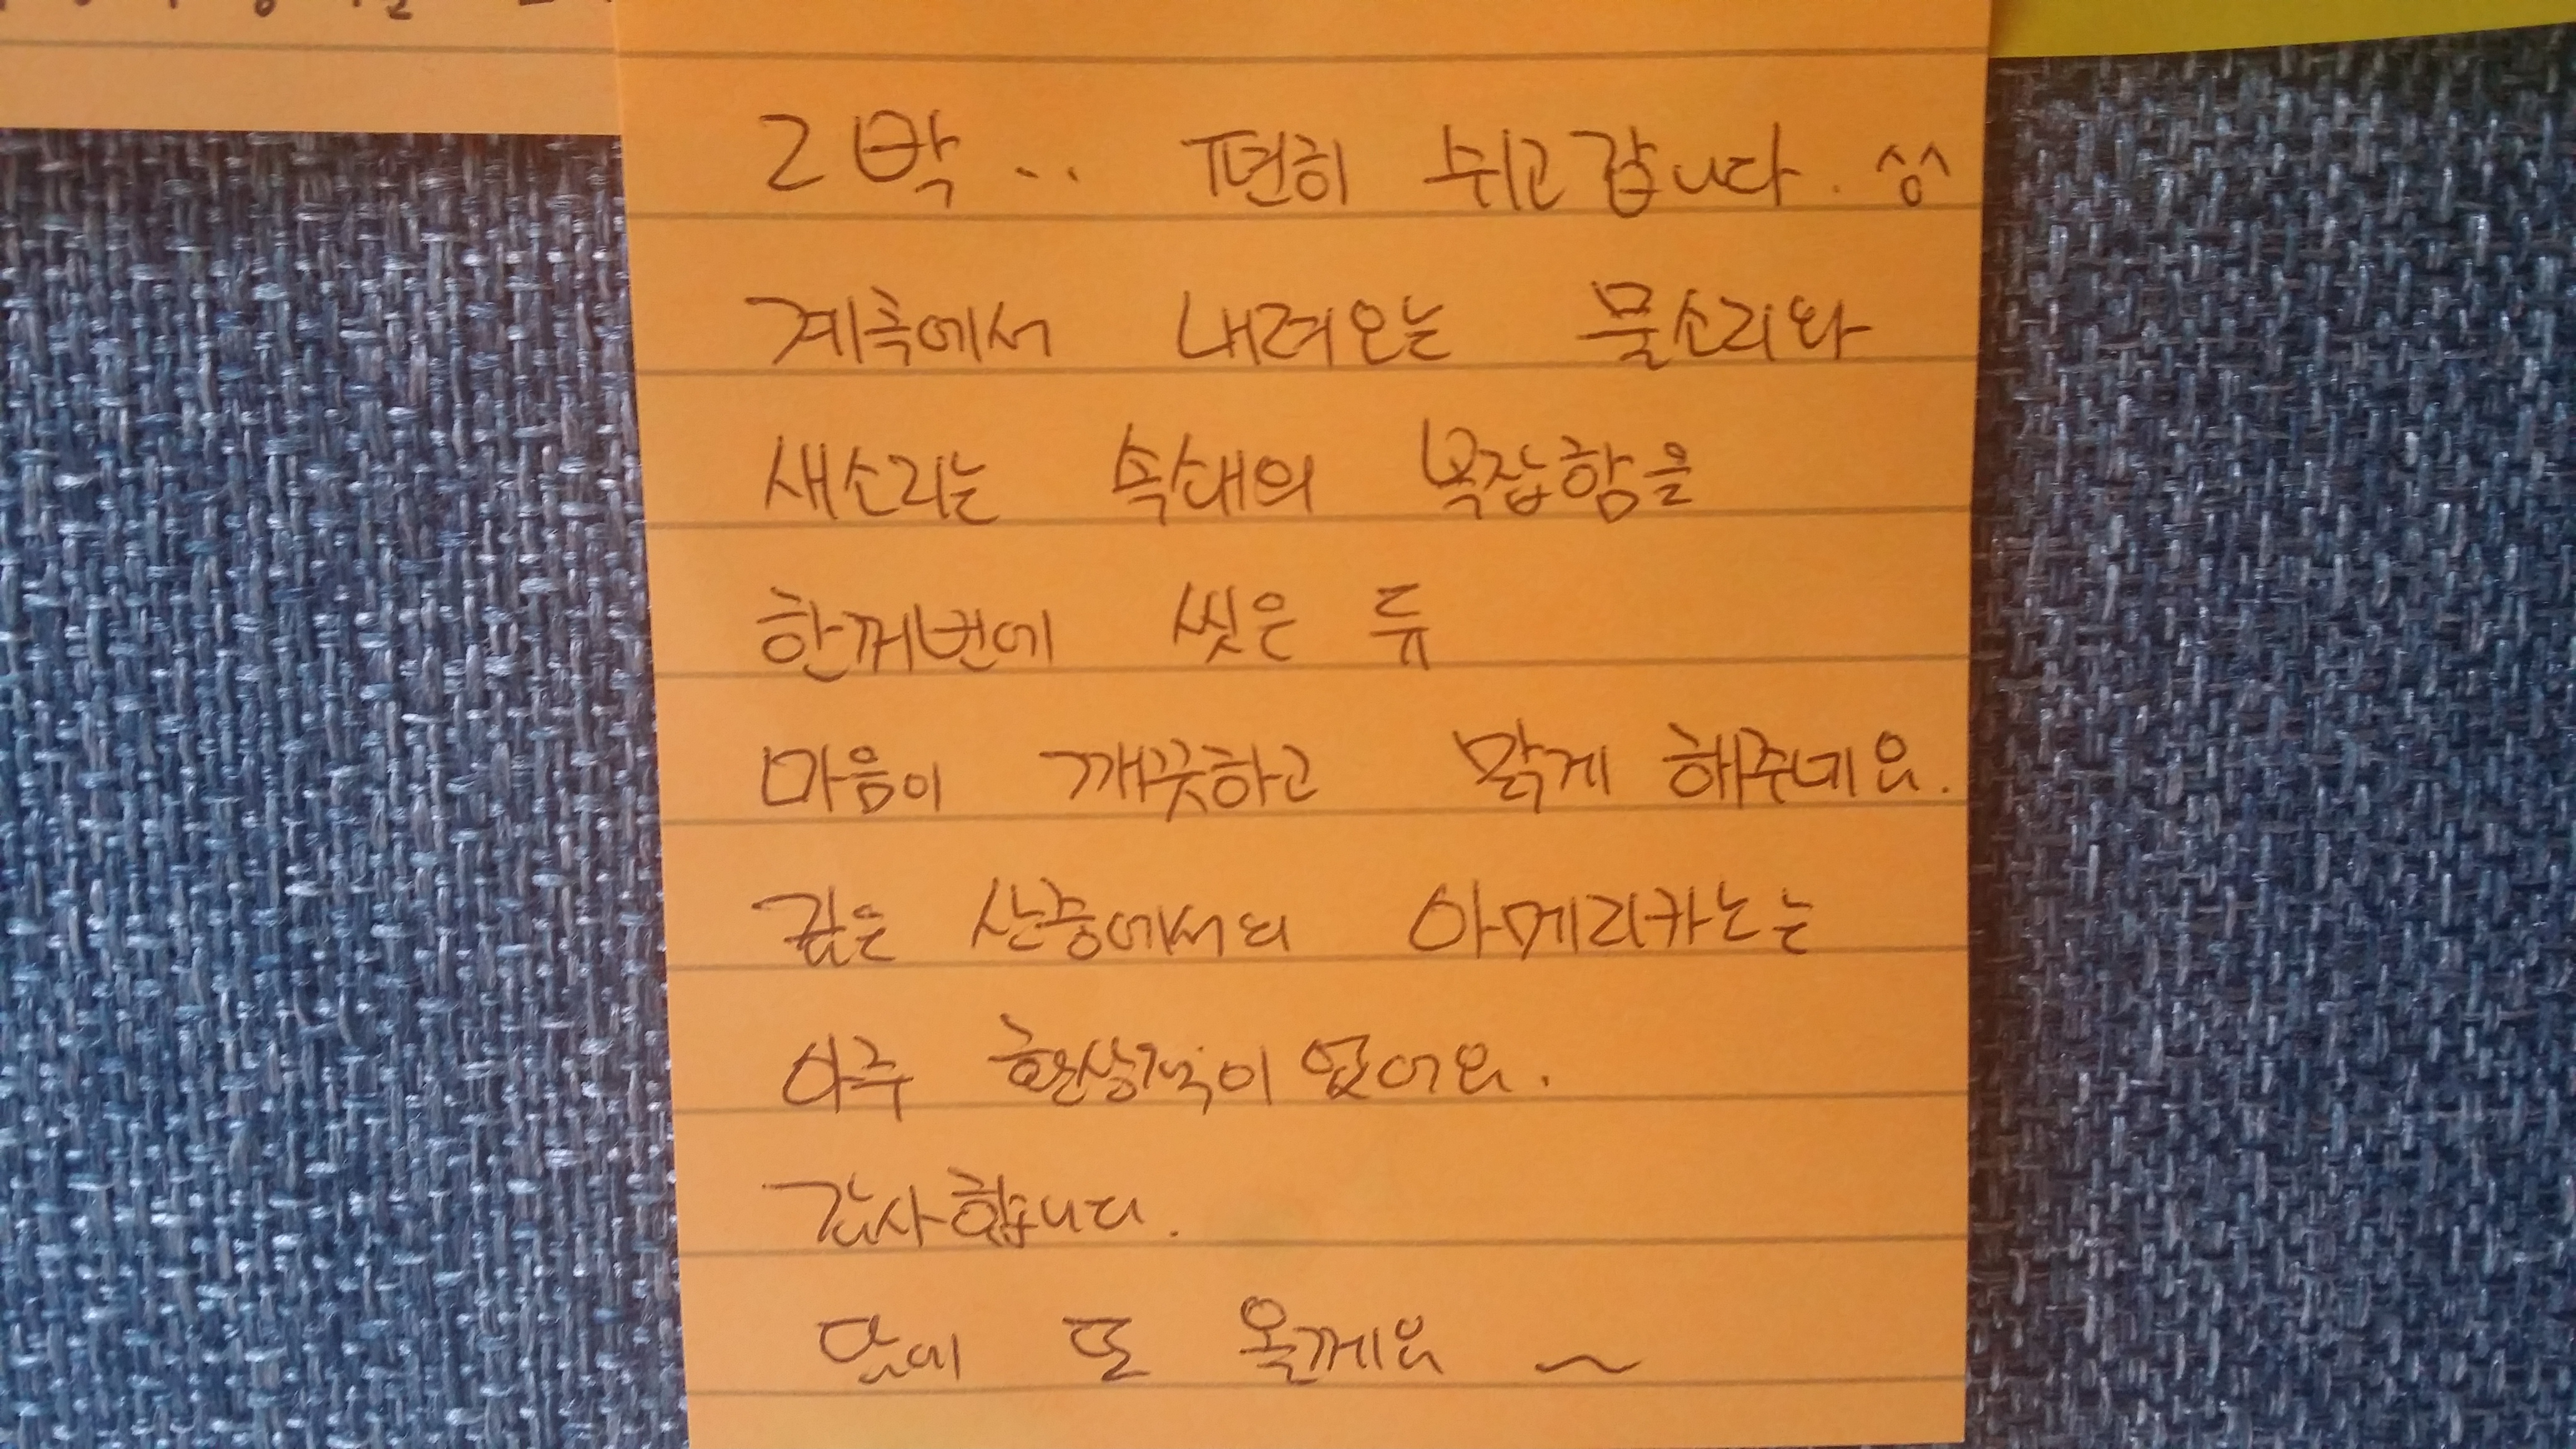 2박.. 편히 쉬고 갑니다. ^^
계측에서 내려오는 물소리와
새소리는 속세의 복잡함을
한꺼번에 씻은 듯
마음이 깨끗하고 맑게 해주네요.
깊은 산중에서의 아메리카노는
아주 환상적이였어요.
감사합니다.
담에 또 올께요 ~